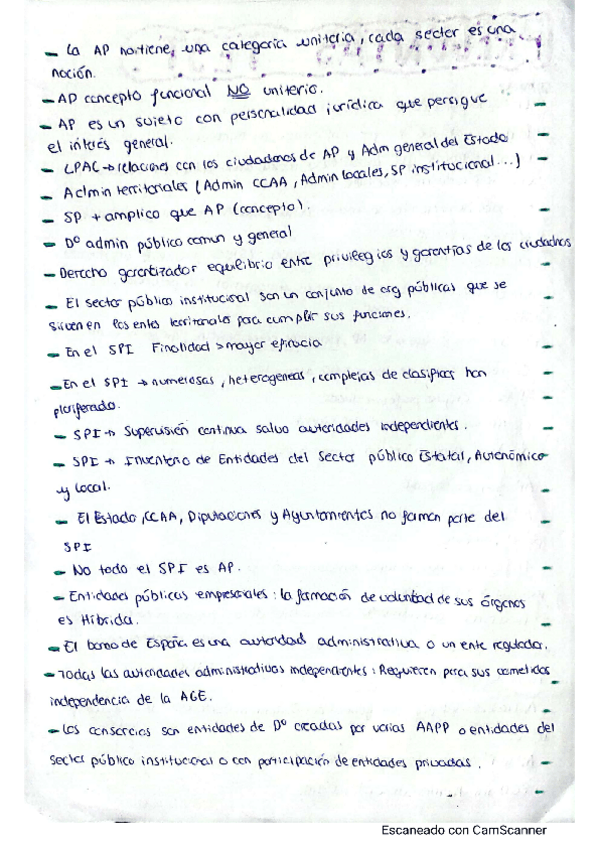 - La AP no tiene, una categoria unitaria, cada sector es una
noción.
- AP concepto funcional NO unitario.
- AP es un sujeto con personalidad jurídica que persigue
el interés general.
- LPAC → relaciones con los ciudadanos de AP y Adm general del Estado
- Admin territoriales (Admin CCAA, Admin locales, SP institucional...)
- SP + amplico que AP (concepto).
- Dº admin público comun y general
- Derecho garantizador equilibrio entre privilegios y garantías de los ciudadanos
- El sector público institucional son un conjunto de org públicas que se
sirven en los entes territoriales para cumplir sus funciones.
- En el SPI Finalidad > mayor eficacia
- En el SPI → numerosas, heterogeneas, complejas de clasificar han
proliferado.
- SPI → Supervisión continua salvo autoridades independientes.
- SPI → Inventario de Entidades del Sector público Estatal, Autonómico
y Local.
- El Estado, CCAA, Diputaciones y Ayuntamientos no forman parte del
SPI
- No todo el SPI es AP.
- Entidades públicas empresariales: la formación de voluntad de sus órganos
es Híbrida.
- El banco de España es una autoridad administrativa o un ente regulador.
- Todas las autoridades administrativas independientes: Requieren para sus cometidos
independencia de la AGE.
- Los consorcios son entidades de Dº creadas por varias AAPP o entidades del
sector público institucional o con participación de entidades privadas.
Escaneado con CamScanner